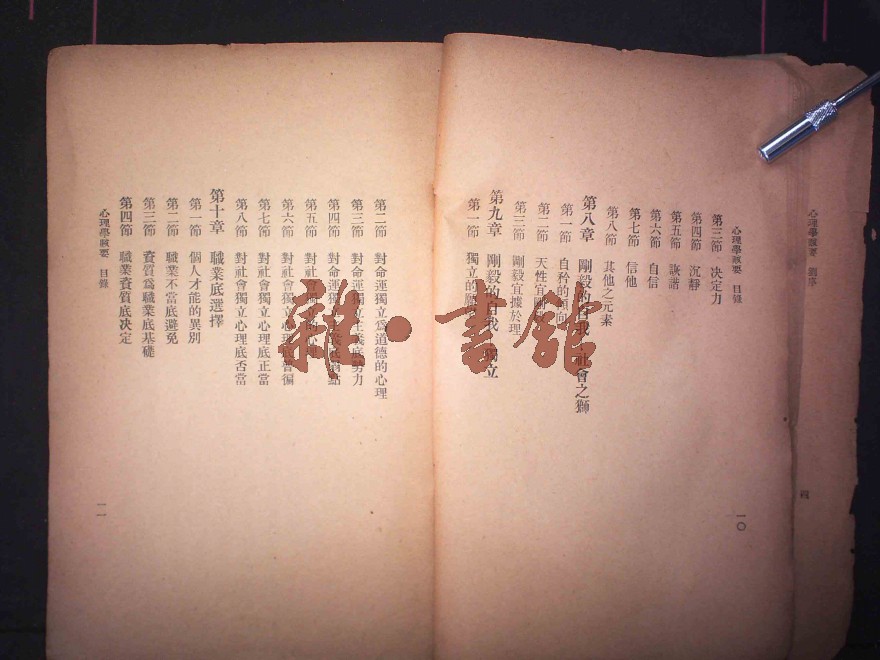 心理學
心理學 目錄
第三節 決定力
第四節 沉靜
第五節 詼諧
第六節 自信
第七節 信他
第八節 其他之元素
第八章 剛毅的自我 社會之獅
第一節 自矜的 向
第二節 天性宜剛
第三節 剛毅宜據於理
第九章 剛毅的自我 獨立
第一節 獨立的
一〇
第二節 對命運獨立爲道德的心理
第三節 對命運獨立主義底勢力
第四節 對命運獨立 點
第五節 對社會獨立的心
第六節 對社會獨立心理底普徧
第七節 對社會獨立心理底正當
第八節 對社會獨立心理底否當
第十章 職業底選擇
第一節 個人才能的異別
第二節 職業不當底避免
第三節 資質爲職業底基礎
第四節 職業資質底決定
心理學 目錄
一一
雜·書館